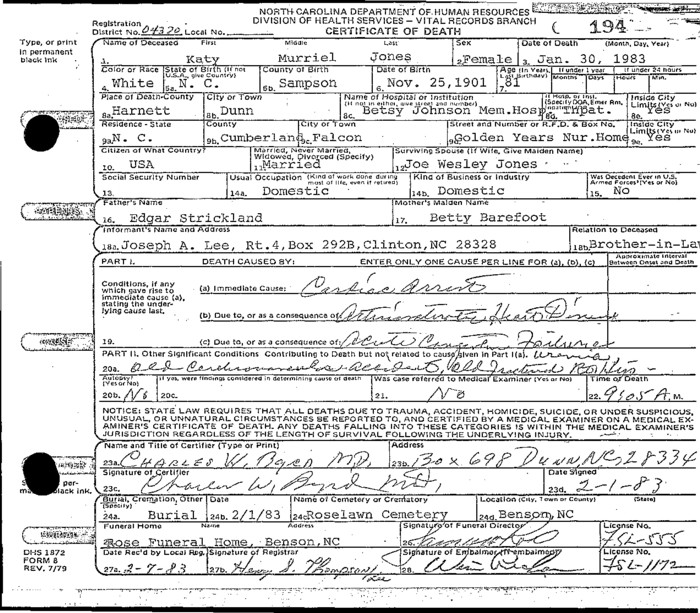 NORTH CAROLINA DEPARTMENT OF HUMAN RESOURCES
DIVISION OF HEALTH SERVICES – VITAL RECORDS BRANCH
CERTIFICATE OF DEATH
194
Registration
District No. 04320 Local No.
Type, or print
in permanent
black ink
Name of Deceased First Middle Last Sex Date of Death (Month, Day, Year)
1. Katy Murriel Jones 2. Female 3. Jan. 30, 1983
Color or Race State of Birth (If not U.S.A., give Country) County of Birth Date of Birth Age (In Years, Last Birthday) If under 1 year Months Days If under 24 hours Hours Min.
4. White 5a. N. C. 5b. Sampson 6. Nov. 25,1901 7. 81
Place of Death-County City or Town Name of Hospital or Institution (If not in either, give street and number) If Hosp. or Inst. (Specify DOA, Emer Rm, Inpatient) Inside City Limits (Yes or No)
8a. Harnett 8b. Dunn 8c. Betsy Johnson Mem.Hosp 8d. inpat. 8e. Yes
Residence - State County City or Town Street and Number or R.F.D. & Box No. Inside City Limits (Yes or No)
9a. N. C. 9b. Cumberland 9c. Falcon 9d. Golden Years Nur.Home 9e. Yes
Citizen of What Country? Married, Never Married, Widowed, Divorced (Specify) Surviving Spouse (If Wife, Give Maiden Name)
10. USA 11. Married 12. Joe Wesley Jones
Social Security Number Usual Occupation (Kind of work done during most of life, even if retired) Kind of Business or Industry Was Decedent Ever in U.S. Armed Forces? (Yes or No)
13. 14a. Domestic 14b. Domestic 15. No
Father's Name Mother's Maiden Name
16. Edgar Strickland 17. Betty Barefoot
Informant's Name and Address Relation to Deceased
18a. Joseph A. Lee, Rt.4,Box 292B,Clinton,NC 28328 18b. Brother-in-Law
PART I. DEATH CAUSED BY: ENTER ONLY ONE CAUSE PER LINE FOR (a), (b), (c) Approximate Interval Between Onset and Death
Conditions, if any
which gave rise to
immediate cause (a),
stating the under-
lying cause last.
(a) Immediate Cause: Cardiac Arrest
(b) Due to, or as a consequence of: Heart Disease
19. (c) Due to, or as a consequence of: Acute Congestive Failure
PART II. Other Significant Conditions Contributing to Death but not related to cause given in Part I(a). Uremia,
20a. Old Cerebrovascular accident, Old fractured Rt hip -
Autopsy? (Yes or No) If yes, were findings considered in determining cause of death Was case referred to Medical Examiner (Yes or No) Time of Death
20b. No 20c. 21. No 22. 9:05 A. M.
NOTICE: STATE LAW REQUIRES THAT ALL DEATHS DUE TO TRAUMA, ACCIDENT, HOMICIDE, SUICIDE, OR UNDER SUSPICIOUS,
UNUSUAL, OR UNNATURAL CIRCUMSTANCES BE REPORTED TO, AND CERTIFIED BY A MEDICAL EXAMINER ON A MEDICAL EX-
AMINER'S CERTIFICATE OF DEATH. ANY DEATHS FALLING INTO THESE CATEGORIES IS WITHIN THE MEDICAL EXAMINER'S
JURISDICTION REGARDLESS OF THE LENGTH OF SURVIVAL FOLLOWING THE UNDERLYING INJURY.
Name and Title of Certifier (Type or Print) Address
23a. CHARLES W. Byrd M.D. 23b. Box 698 Dunn NC, 28334
Signature of Certifier Date Signed
23c. Charles W. Byrd MD, 23d. 2-1-83
per-
black ink.
Burial, Cremation, Other (Specify) Date Name of Cemetery or Crematory Location (City, Town or County) (State)
24a. Burial 24b. 2/1/83 24c. Roselawn Cemetery 24d. Benson,NC
Funeral Home Name Address Signature of Funeral Director License No.
25. Rose Funeral Home, Benson,NC 26. FSL-555
Date Rec'd by Local Reg. Signature of Registrar Signature of Embalmer (If embalmed) License No.
27a. 2-7-83 27b. Henry S. Thompson/ 28. FSL-1172
DHS 1872
FORM 8
REV. 7/79